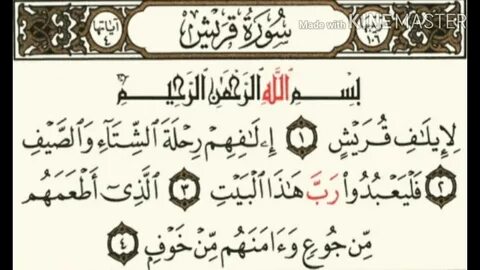 سُورَةُ قُرَيْشٍ
آيَاتُهَا ٤
١٠٦
Made with KINEMASTER
بِسْمِ اللَّهِ الرَّحْمَٰنِ الرَّحِيمِ
لِإِيلَٰفِ قُرَيْشٍ ١ إِۦلَٰفِهِمْ رِحْلَةَ الشِّتَآءِ وَالصَّيْفِ
٢ فَلْيَعْبُدُوا۟ رَبَّ هَٰذَا الْبَيْتِ ٣ الَّذِىٓ أَطْعَمَهُم
مِّن جُوعٍ وَءَامَنَهُم مِّنْ خَوْفٍ ٤